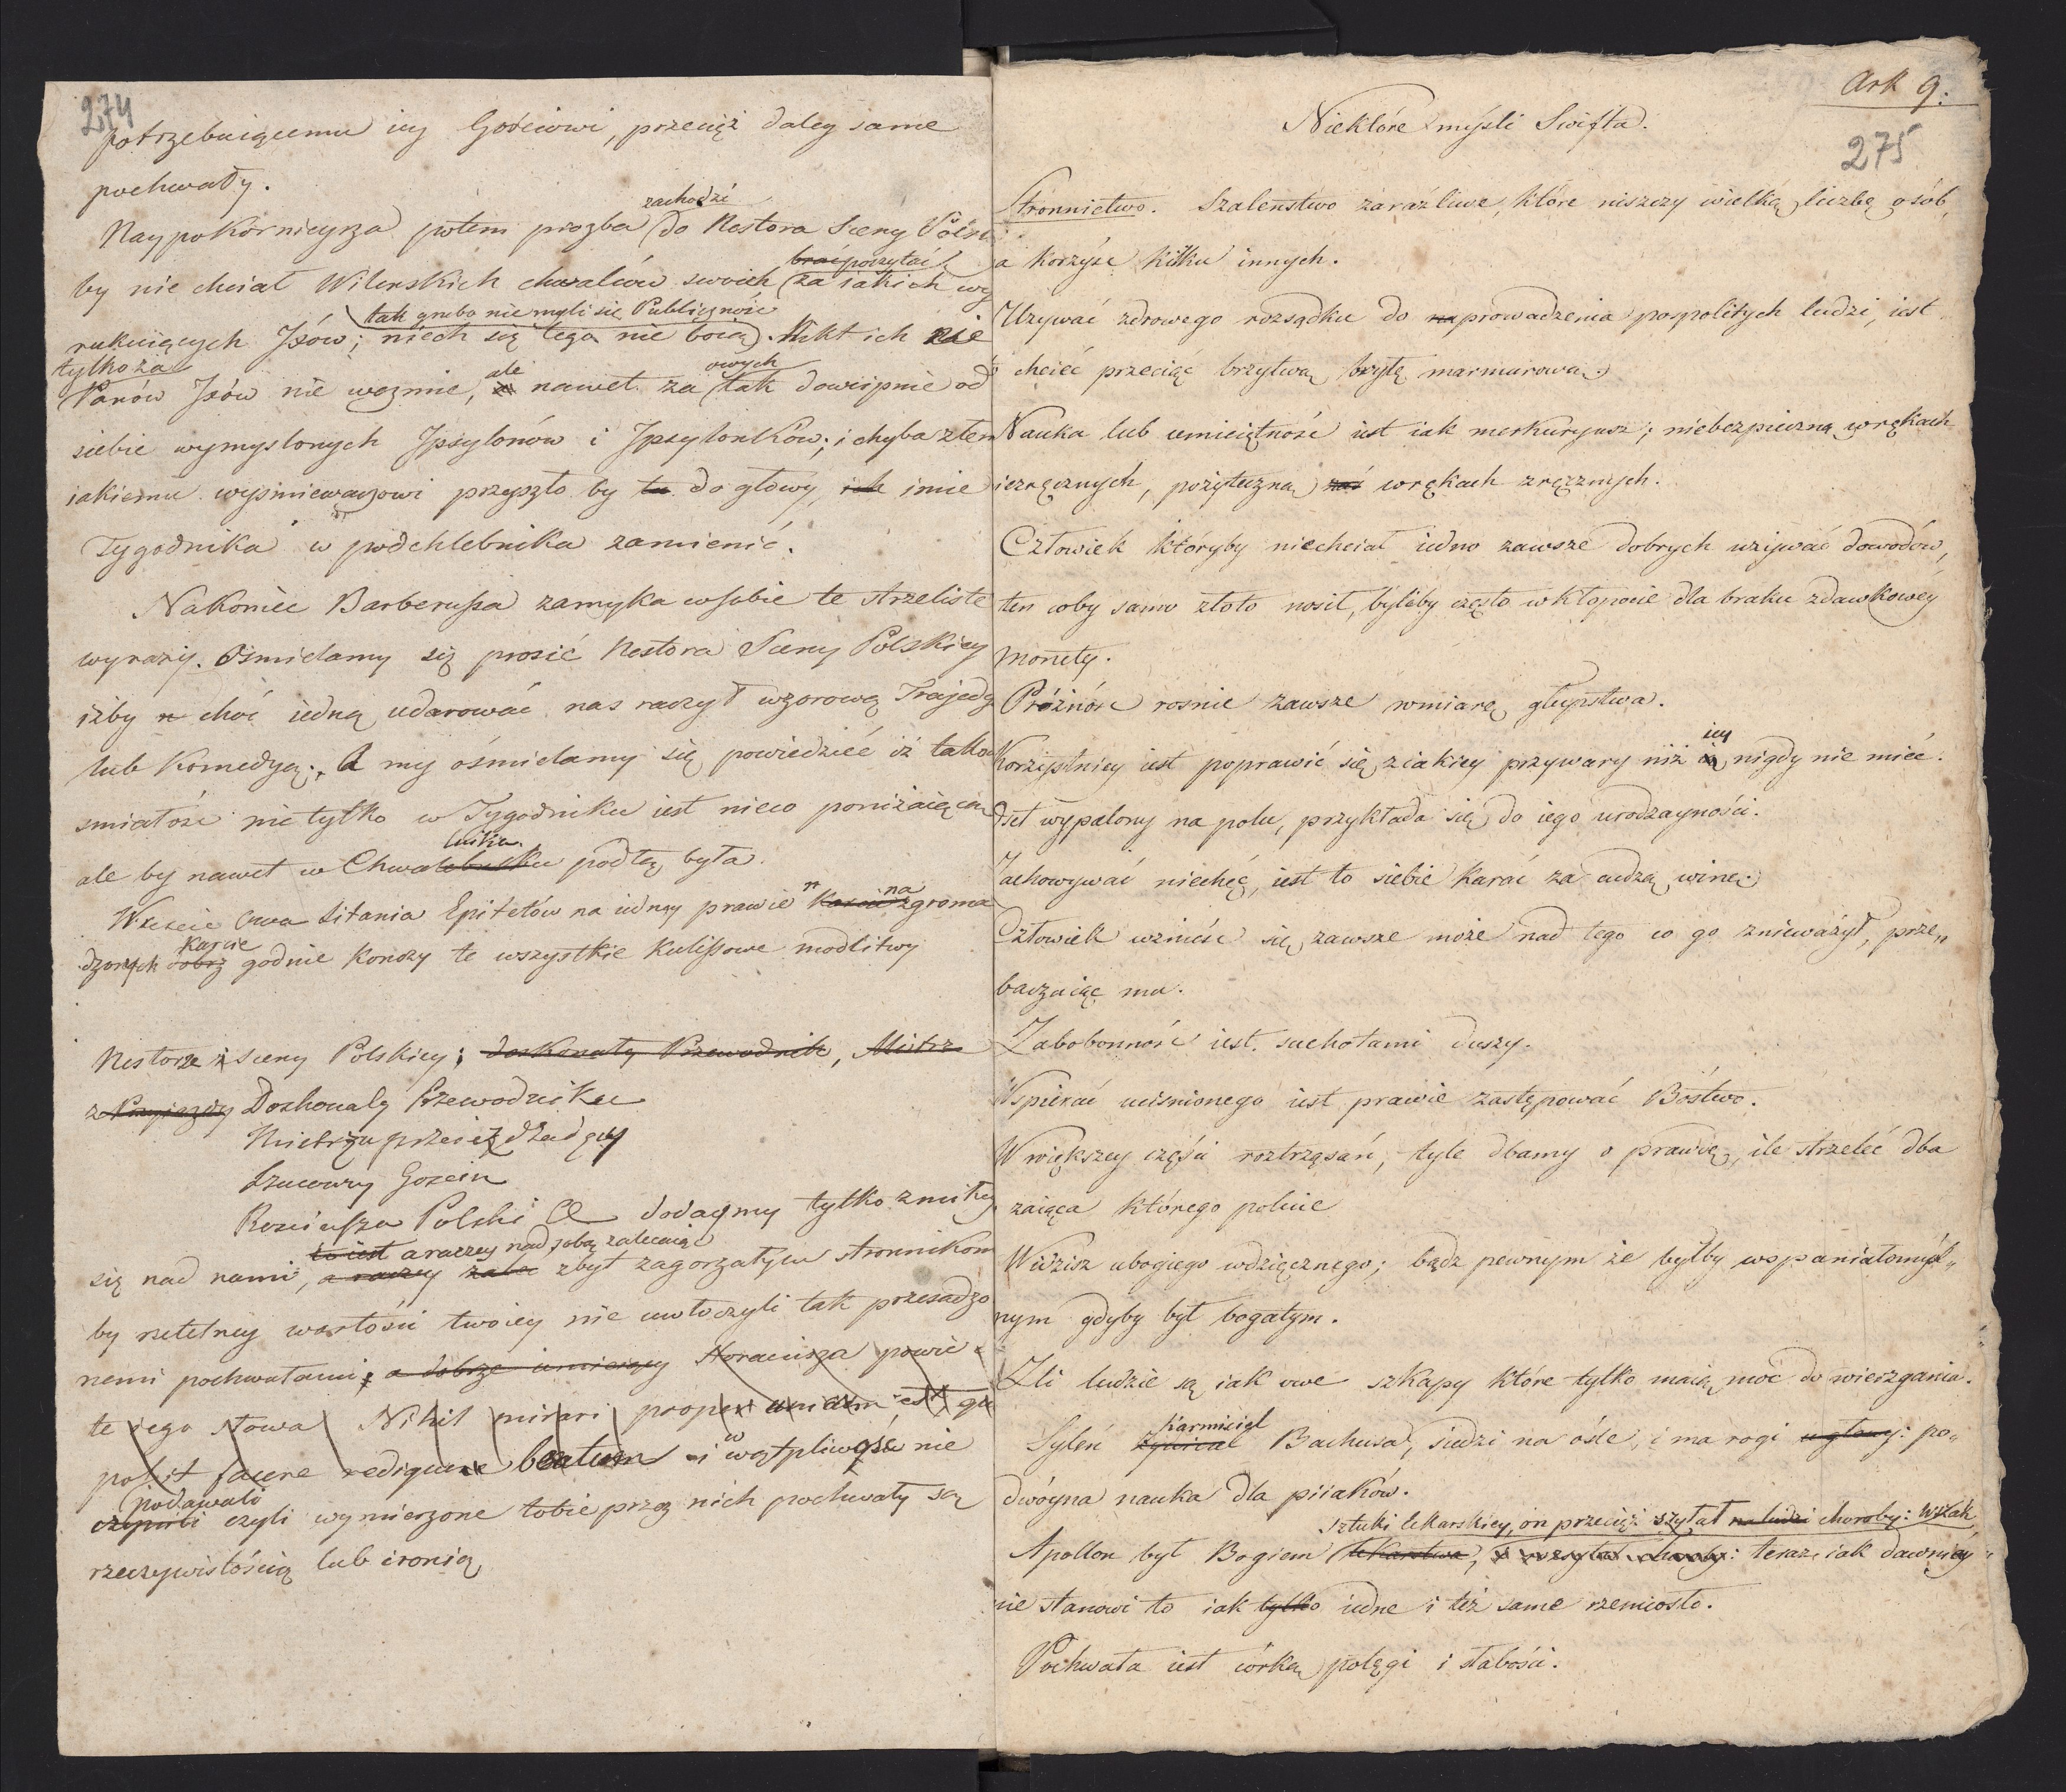 274
potrzebuiącemu iey Gościowi, przecięż daley same
pochwały.
zachodzi
Naypokornieysza potem prozba do Nestora Sceny Polski
brać poczytać
by nie chciał Wilenskich chwalców swoich za iakich wy
tak grubo nie myli się Publiczność
rukuiących Jxów; niech się tego nie boią. Nikt ich nie
tylko za ale owych
Panów Jxów nie weźmie, a nawet za tak dowcipnie od
siebie wymyslonych Jpsylonów i Jpsylonków; i chyba złem
iakiemu wyśmiewaczowi przyszło by tu do głowy, ich imie
Tygodnika w podchlebnika zamienić.
Nakoniec Barberussa zamyka w sobie te strzeliste
wyrazy. Ośmielamy się prosić Nestora Sceny Polskiey
iżby n choć iedną udarować nas raczył wzorową Trajedy
lub Komedyą; A my ośmielamy się powiedzieć iż taka
smiałość nie tylko w Tygodniku iest nieco poniżaiącą
ale by nawet w Chwalebusku podłą była.
Wreście owa Litania Epitetów na iedney prawie na zgroma
karcie
dzonych dobrz godnie kończy te wszystkie kulissowe modlitwy
Nestorze z Sceny Polskiey; doskonały Przewodnik, Mistrz
z Przyiazdy Doskonały Przewodniku
Mistrzu przeieżdżaiący
Szacowny Gościu
Rosciussza Polski &. dodaymy tylko zmiłuy
to iest a raczey nad sobą zalecaiąc
się nad nami, a raczey zalec zbyt zagorzałym stronnikom
by rzetelney wartości twoiey nie uwłoczyli tak przesadzo
nemi pochwałami; a dobrze umieiący Horaciusza powie
te iego słowa Nihil mirari prope est qu
possit facere redigere beatum i w wątpliwość nie
podawali
czynili czyli wymierzone tobie przez nich pochwały są
rzeczywistością lub ironią
Ark 9.
275
Niektóre myśli Swifta.
Stronnictwo. Szalenstwo zaraźliwe, które niszczy wielką liczbę osób,
a korzyść kilku innych.
Używać zdrowego rozsądku do naprowadzenia pospolitych ludzi, iest
chcieć przeciąć brzytwą bryłę marmurową.
Nauka lub umieiętność iest iak merkuryusz; niebezpieczną w rękach
iezręcznych, pożyteczną zaś w rękach zręcznych.
Człowiek któryby niechciał iedno zawsze dobrych używać dowodów,
ten coby samo złoto nosił, byłby często w kłopocie dla braku zdawkowéy
monety.
Próżność rosnie zawsze w miarę głupstwa.
iey
Korzystniey iest poprawić się z iakiey przywary niż ią nigdy nie mieć.
Oset wypalony na polu, przykłada się do iego urodzayności.
Zachowywać niechęć, iest to siebie karać za cudzą winę.
Człowiek wznieść się zawsze może nad tego co go znieważył, prze„
baczaiąc mu.
Zabobonność iest suchotami duszy.
Wspierać uciśnionego iest prawie zastępować Bóstwo.
W większey części roztrząsań, tyle dbamy o prawdę, ile strzelec dba
zaiąca którego poluie
Widzisz ubogiego wdzięcznego; bądz pewnym że byłby wspaniałomyśl„
nym gdyby był bogatym.
Zli ludzie są iak owe szkapy które tylko maią moc do wierzgania.
karmiciel
Syleń żywiciel Bachusa, siedzi na ośle, i ma rogi u głowy: po„
dwóyna nauka dla piiaków.
sztuki lekarskiey, on przecięż zsyłał na ludzi choroby: Wszak
Apollon był Bogiem lekarstwa, i zsyłał choroby: teraz, iak dawniéy
nie stanowi to iak tylko iedne i też same rzemiosło.
Pochwała iest córką potęgi i słabości.